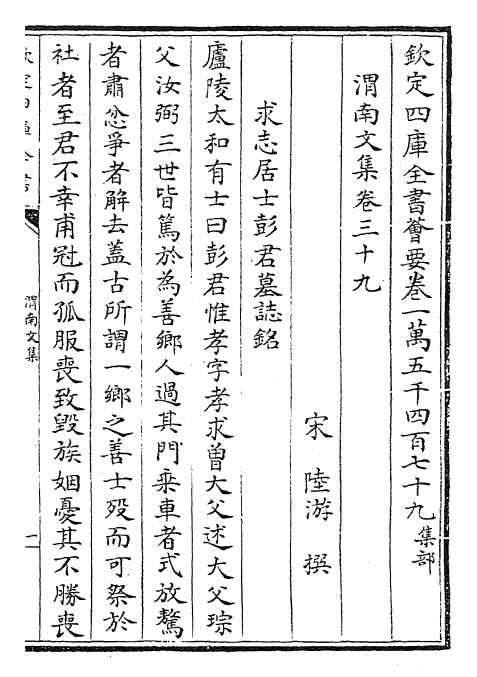 欽定四庫全書薈要卷一萬五千四百七十九集部
渭南文集卷三十九
宋陸游撰
求志居士彭君墓誌銘
廬陵太和有士曰彭君惟孝字孝求曽大父述大父琮
父汝弼三世皆篤於為善鄉人過其門乗車者式放驁
者肅忿爭者解去蓋古所謂一鄉之善士歿而可祭於
社者至君不幸甫冠而孤服喪致毀族姻憂其不勝喪
欽定四庫全書
渭南文集
一